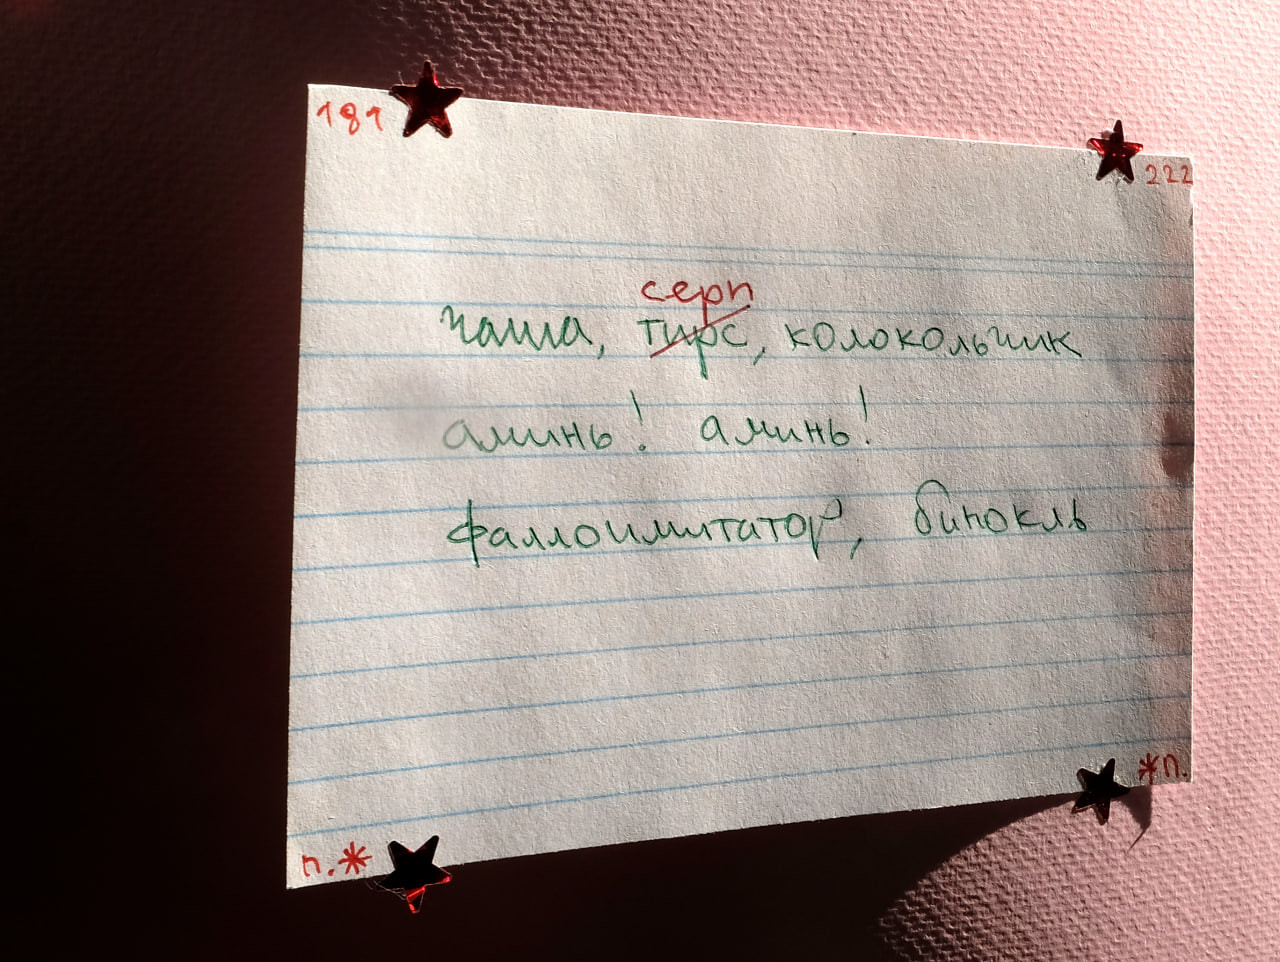 181
222
серп
чаша, тирс, колокольчик
аминь! аминь!
фаллоимитатор, бинокль
*п.
п.*